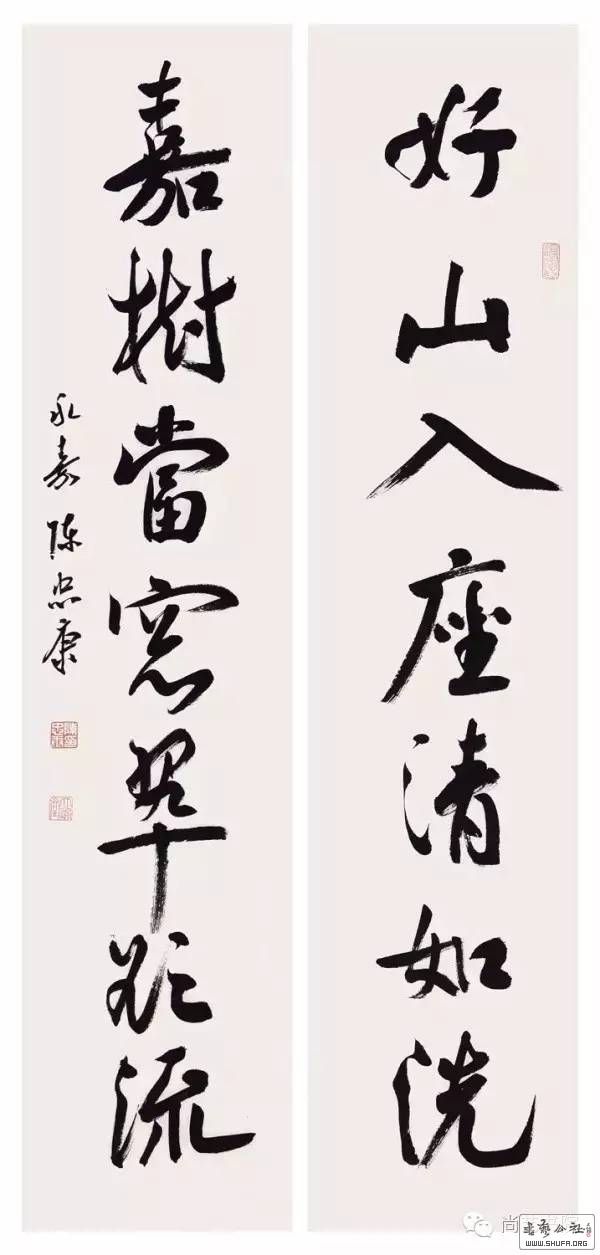 好山入座清如洗
嘉樹當窓翠欲流
永嘉陈忠康
尚
書藝公社
WWW.SHUFA.ORG